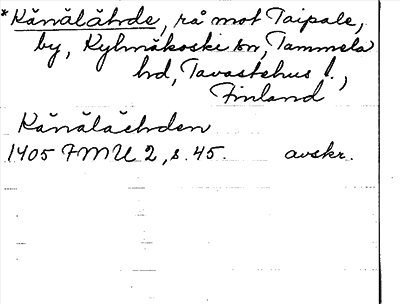 *Känälähde, rå mot Taipale,
by, Kylmäkoski sn, Tammela
hd, Tavastehus l.,
Finland
Känäläehden
1405 FMU 2, s. 45. avskr.